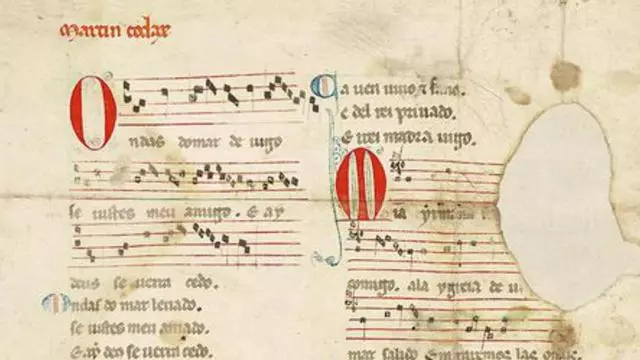 martin codax
Ondas do mar de uigo
se uistes meu amigo. E ay
deus se uerra cedo.
Ondas do mar leuado.
se uistes meu amado.
E ay deus se uerra cedo.
Ca uen uiuo
e del rei priuado.
E irei madr a uigo.
Mia
comigo. ala ygreia de
mar salido E miraremos las ondas.